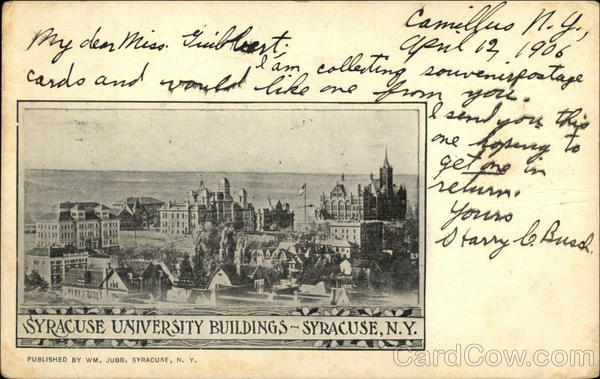 Camillus N.Y.,
April 12, 1906
My dear Miss. Guibhert:
I am collecting souvenir postage
cards and would like one from you.
I send you this
one hoping to
get one in
return.
Yours
Harry C. Busch.
SYRACUSE UNIVERSITY BUILDINGS ~ SYRACUSE, N.Y.
PUBLISHED BY WM. JUBB, SYRACUSE, N. Y.
CardCow.com